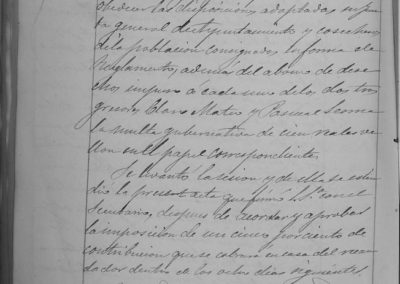 obedecer las disposiciones adoptadas en jun
ta general de Ayuntamiento y cosecheros
de la poblacion consignadas en forma de
Reglamento, ademas del abono de dere
chos impuso a cada uno de los dos in
gresores Claro Mateo y Pascual
la multa gubernativa de cien reales ve
llon en el papel correspondiente.
Se levantó la sesion y de ella se esten
dió la presente acta que firmó S. Sª con el
Secretario, despues de acordar y aprobar
la imposicion de un cinco por ciento de
contribucion que se cobrará en casa del recau
dador dentro de los ocho dias siguientes.